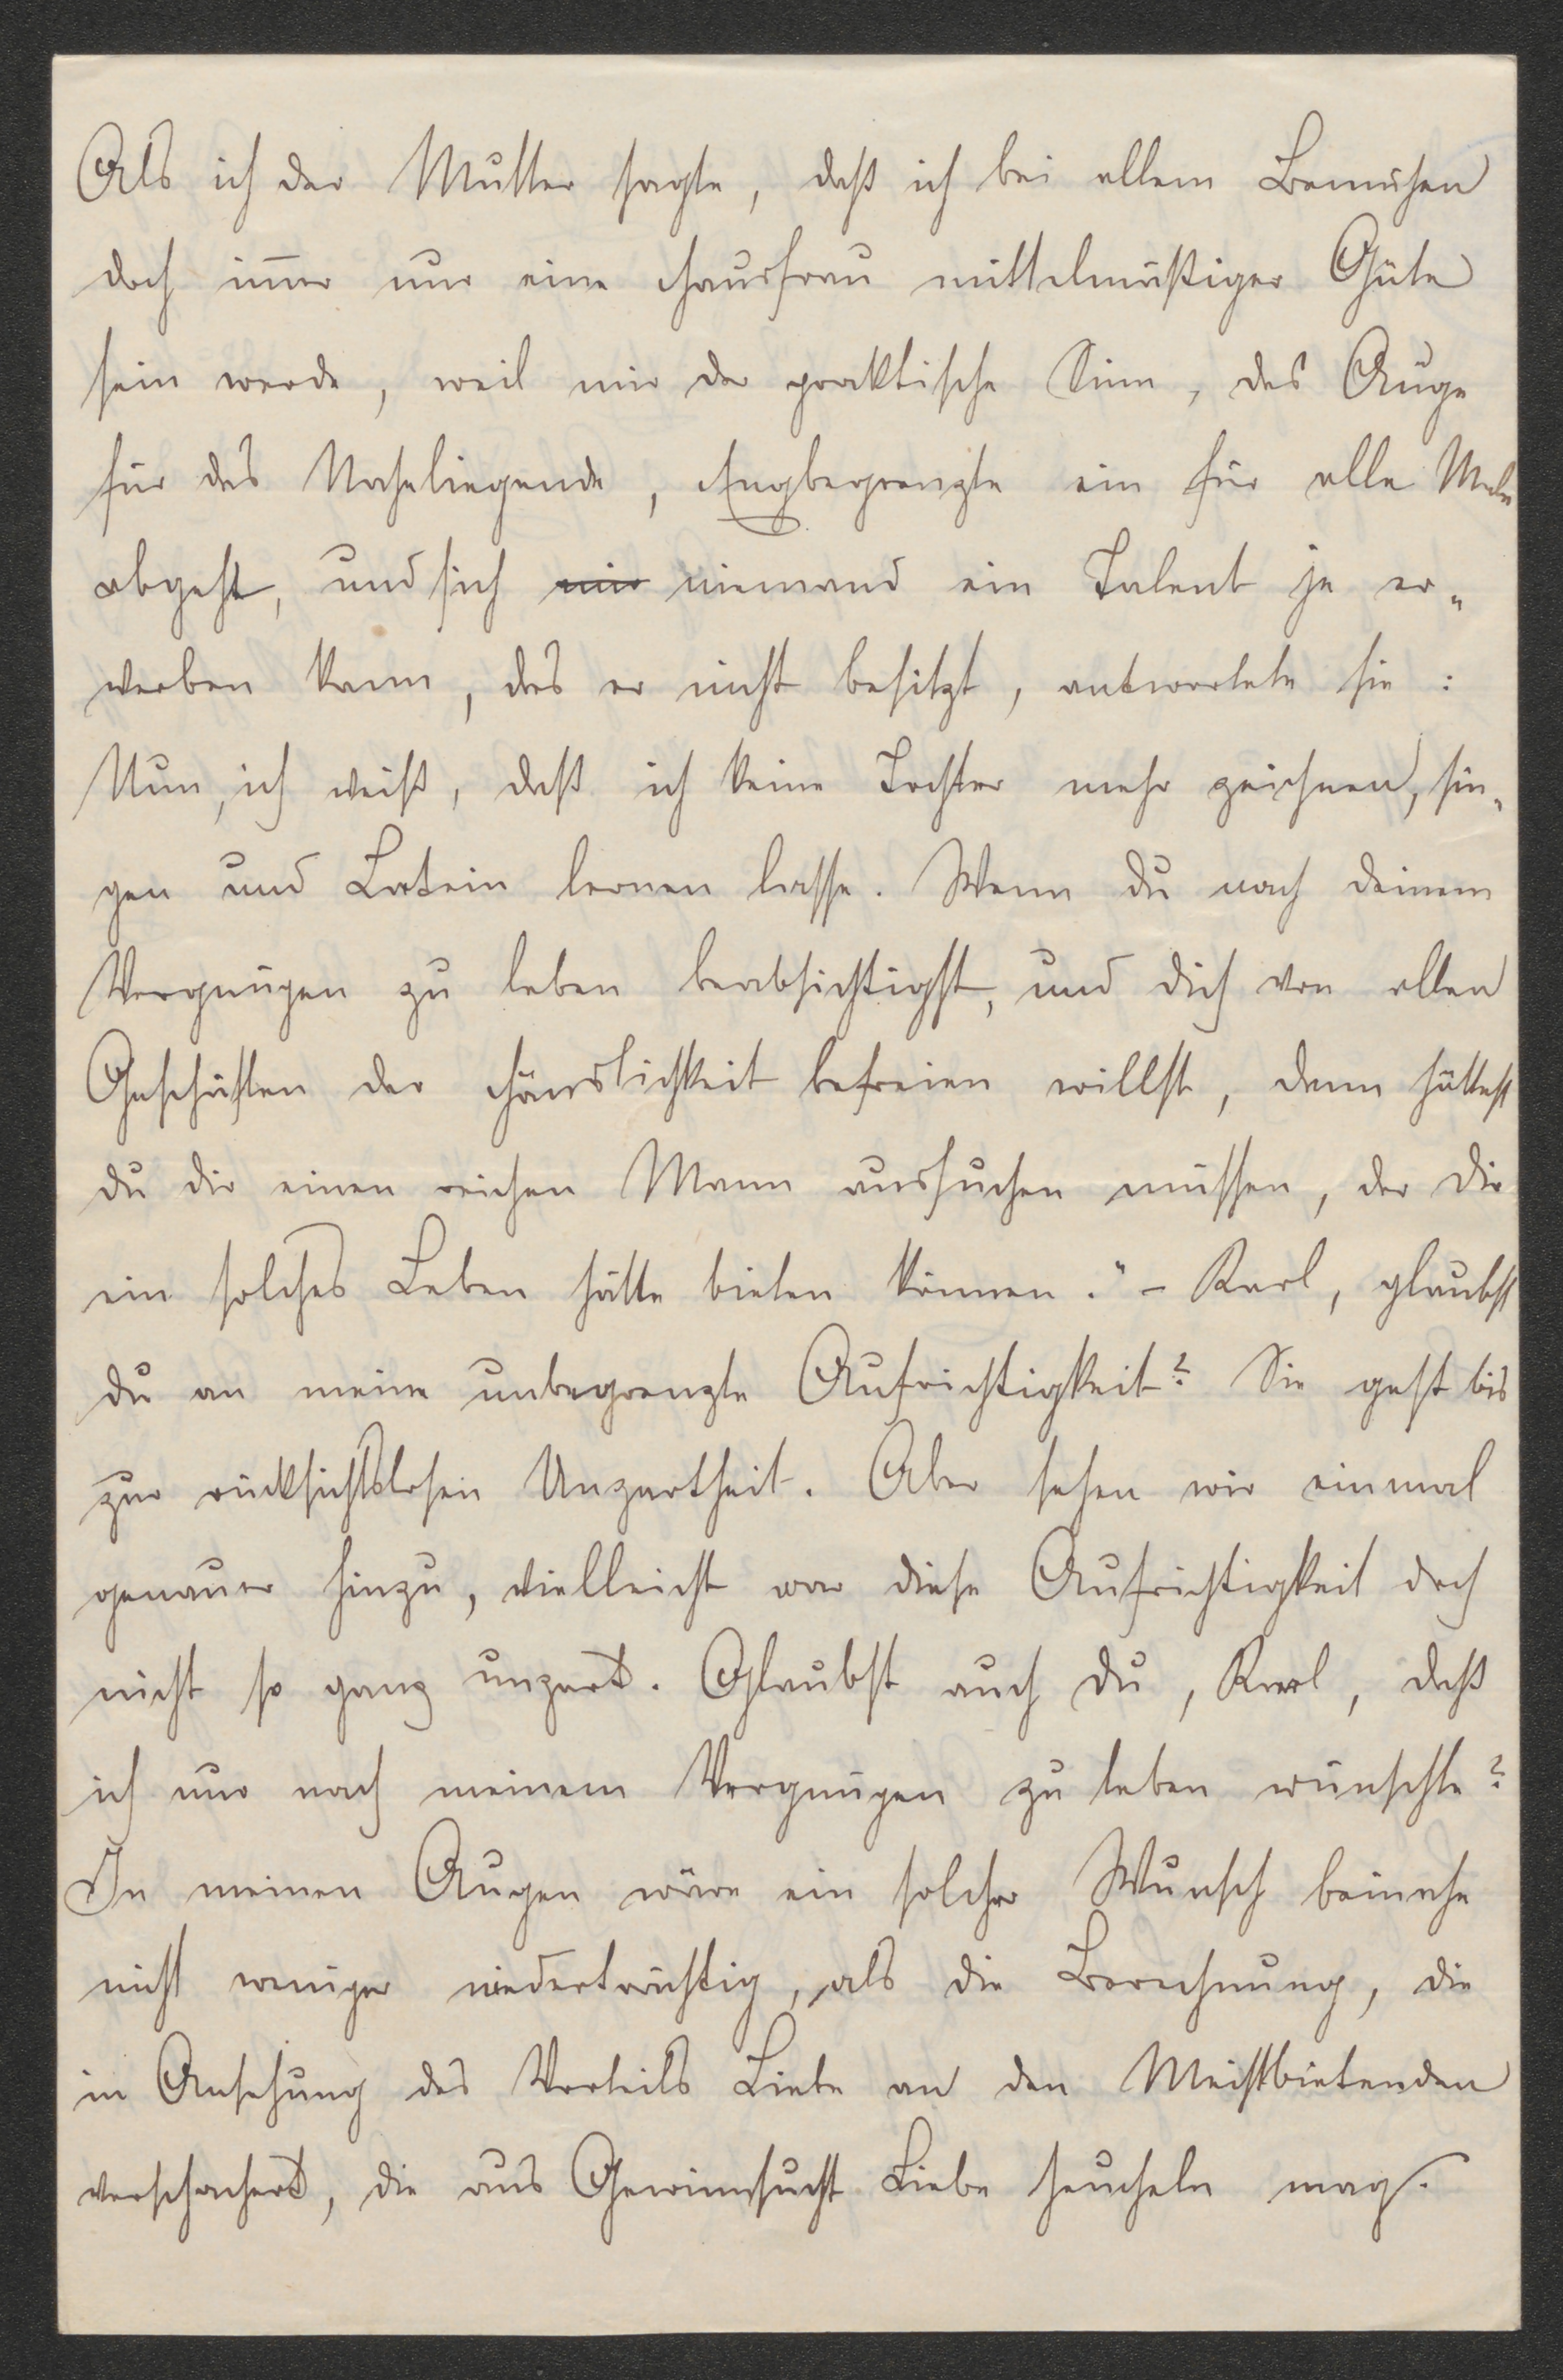 Als ich der Mutter sagte, daß ich bei allem Bemühen
doch im̅er nur eine Hausfrau mittelmäßiger Güte
sein werde, weil mir der praktische Sinn, das Auge
für das Naheliegende, Engbegrenzte ein für alle Male
abgeht, und sich mir niemand ein Talent je er„
werben kann, das er nicht besitzt, antwortete sie:
Nun, ich weiß, daß ich keine Tochter mehr zeichnen, sin„
gen und Latein lernen lasse. Wenn du nach deinem
Vergnügen zu leben beabsichtigst, und dich von allen
Geschäften der Häuslichkeit befreien willst, dann hättest
du dir einen reichen Mann aussuchen müssen, der dir
ein solches Leben hätte bieten können." – Karl, glaubst
du an meine unbegrenzte Aufrichtigkeit? Sie geht bis
zur rücksichtslosen Unzartheit. Aber sehen wir einmal
genauer hinzu, vielleicht war diese Aufrichtigkeit doch
nicht so ganz unzart. Glaubst auch du, Karl, daß
ich nur nach meinem Vergnügen zu leben wünschte?
In meinen Augen wäre ein solcher Wunsch beinahe
nicht weniger niederträchtig, als die Berechnung, die
in Ansehung des Vorteils Liebe an den Meistbietenden
verschachert, die aus Gewinnsucht Liebe heucheln mag.